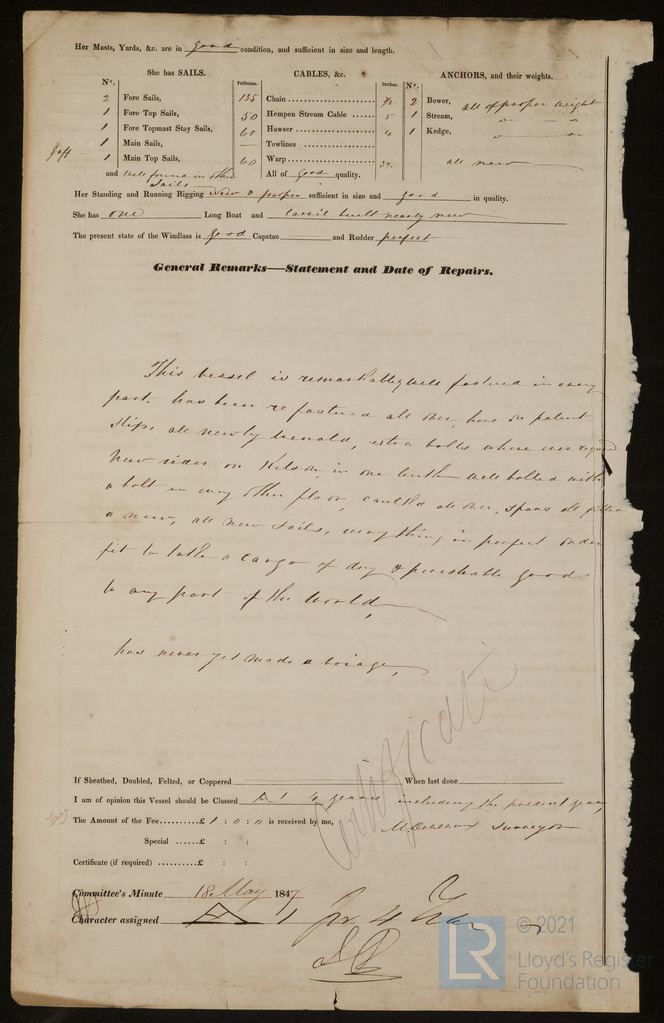 Her Masts, Yards, &c. are in good condition, and sufficient in size and length.
She has SAILS.
CABLES, &c.
ANCHORS, and their weights.
N°.
Fathoms.
Inches.
N°.
2 Fore Sails,
1 Fore Top Sails,
1 Fore Topmast Stay Sails,
Gaff 1 Main Sails,
1 Main Top Sails,
and well found in other
Sails
Chain 135
Hempen Stream Cable 50 5
Hawser 60 4
Towlines —
Warp 60
All of good quality.
2 Bower, all of proper weight
1 Stream,
1 Kedge,
all new
Her Standing and Running Rigging new & proper sufficient in size and good in quality.
She has one Long Boat and built nearly new
The present state of the Windlass is good Capstan and Rudder perfect
General Remarks—Statement and Date of Repairs.
This vessel is remarkably well fastened in every
part, has been re fastened all over, been on patent
Slip, all newly extra bolts where ever required
New rider on Kelson, in one well bolted with
a bolt in every other floor, caulked all over, spars all fitted
a new, all new sails, every thing in perfect order
fit to take a cargo of dry & perishable goods
to any part of the world,
has never yet made a voiage,
Certificate
If Sheathed, Doubled, Felted, or Coppered When last done
I am of opinion this Vessel should be Classed A 1 4 years including the present year,
The Amount of the Fee £ 1 : 0 : 0 is received by me,
Surveyor
Special £ : :
Certificate (if required) £ : :
Committee's Minute 18 May 1847
Character assigned A 1 for 4 Years
LR
© 2021
Lloyd's Register
Foundation